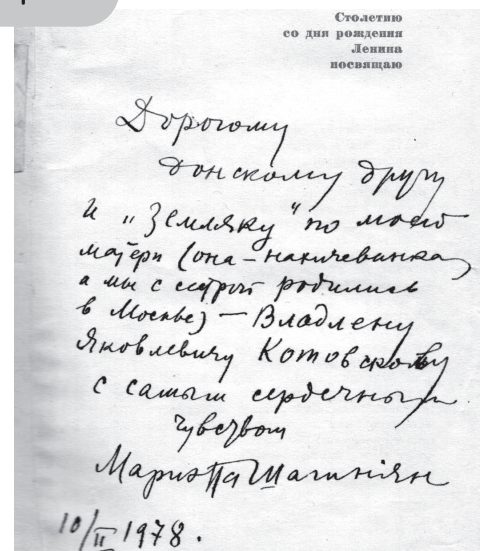 Столетию
со дня рождения
Ленина
посвящаю
Дорогому
донскому другу
и „Земляку" по моей
матери (она – нахичеванка,
а мы с сестрой родились
в Москве) – Владлену
Яковлевичу Котовскому
с самым сердечным
чувством
Мариэтта Шагинян
10/II 1978.